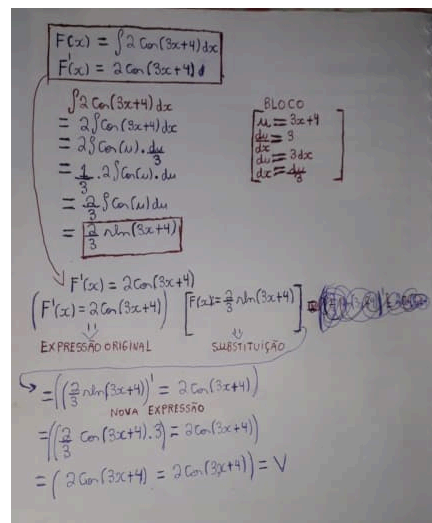 F(x) = ∫2 Cos(3x+4) dx
F'(x) = 2 Cos(3x+4)
∫2 Cos(3x+4) dx
= 2∫Cos(3x+4) dx
= 2∫Cos(u) . du/3
= 1/3 . 2∫Cos(u) . du
= 2/3 ∫Cos(u) du
= 2/3 sen(3x+4)
BLOCO
u = 3x+4
du/dx = 3
du = 3dx
dx = du/3
F'(x) = 2Cos(3x+4)
(F'(x) = 2Cos(3x+4)) [F(x) = 2/3 sen(3x+4)] =
EXPRESSÃO ORIGINAL SUBSTITUIÇÃO
= ((2/3 sen(3x+4))' = 2Cos(3x+4))
NOVA EXPRESSÃO
= ((2/3 Cos(3x+4) . 3) = 2Cos(3x+4))
= (2Cos(3x+4) = 2Cos(3x+4)) = V